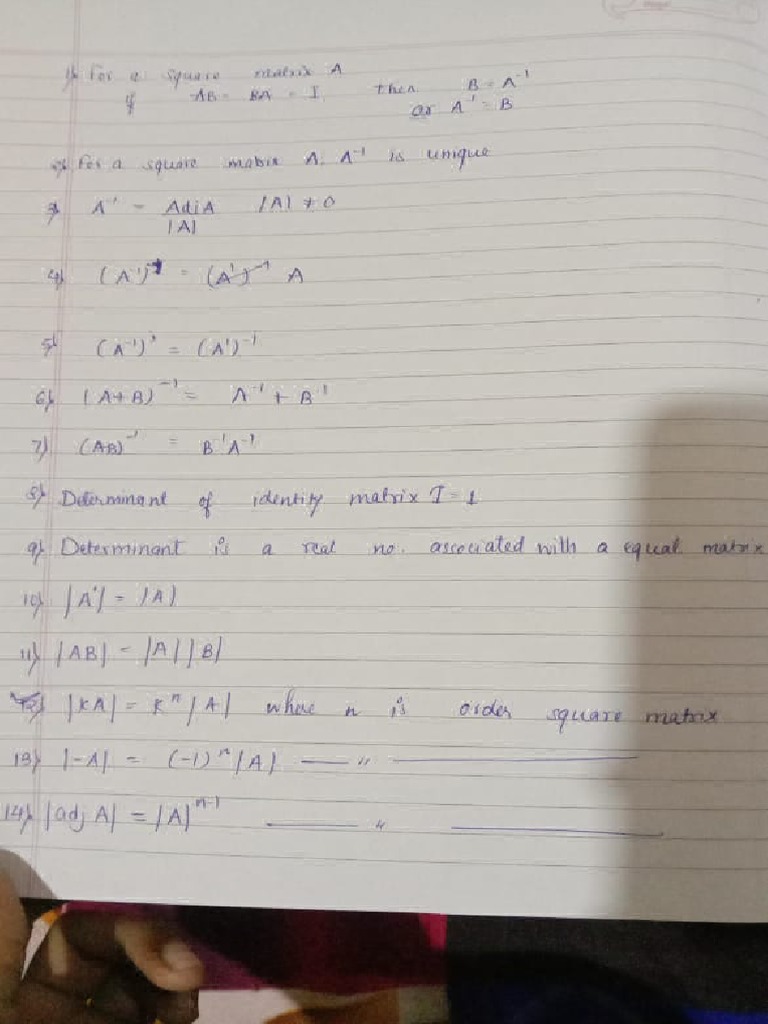 1) For a square matrix A
if AB = BA = I, then B = A⁻¹
or A⁻¹ = B
2) For a square matrix A, A⁻¹ is unique
3) A⁻¹ = AdjA |A| ≠ 0
|A|
4) (A⁻¹)⁻¹ = A
5) (A⁻¹)' = (A')⁻¹
6) (A+B)⁻¹ = A⁻¹ + B⁻¹
7) (AB)⁻¹ = B⁻¹A⁻¹
8) Determinant of identity matrix I = 1
9) Determinant is a real no. associated with a equal matrix
10) |A'| = |A|
11) |AB| = |A||B|
12) |KA| = Kⁿ|A| where n is order square matrix
13) |-A| = (-1)ⁿ|A| —— " ——
14) |adj A| = |A|ⁿ⁻¹ —— " ——